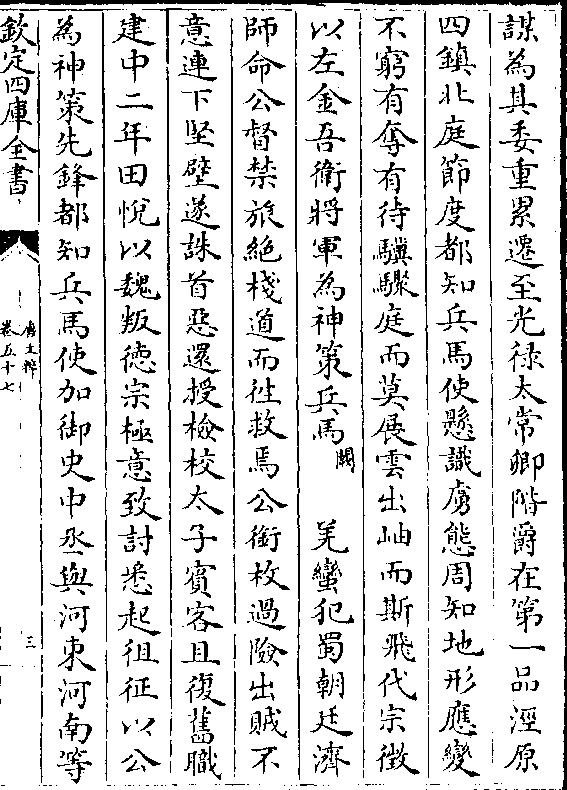 謀為其委重累遷至光禄太常卿階爵在第一品涇原
四鎮北庭節度都知兵馬使懸識虜態周知地形應變
不窮有奪有待驥騄庭而莫展雲出岫而斯飛代宗徴
以左金吾衛將軍為神策兵馬闕 羌蠻犯蜀朝廷濟
師命公督禁旅絶棧道而往救焉公銜枚過險出賊不
意連下堅壁遂誅首惡還授檢校太子賓客且復舊職
建中二年田悅以魏叛德宗極意致討悉起徂征以公
為神策先鋒都知兵馬使加御史中丞與河東河南等
欽定四庫全書
唐文粹
卷五十七
三